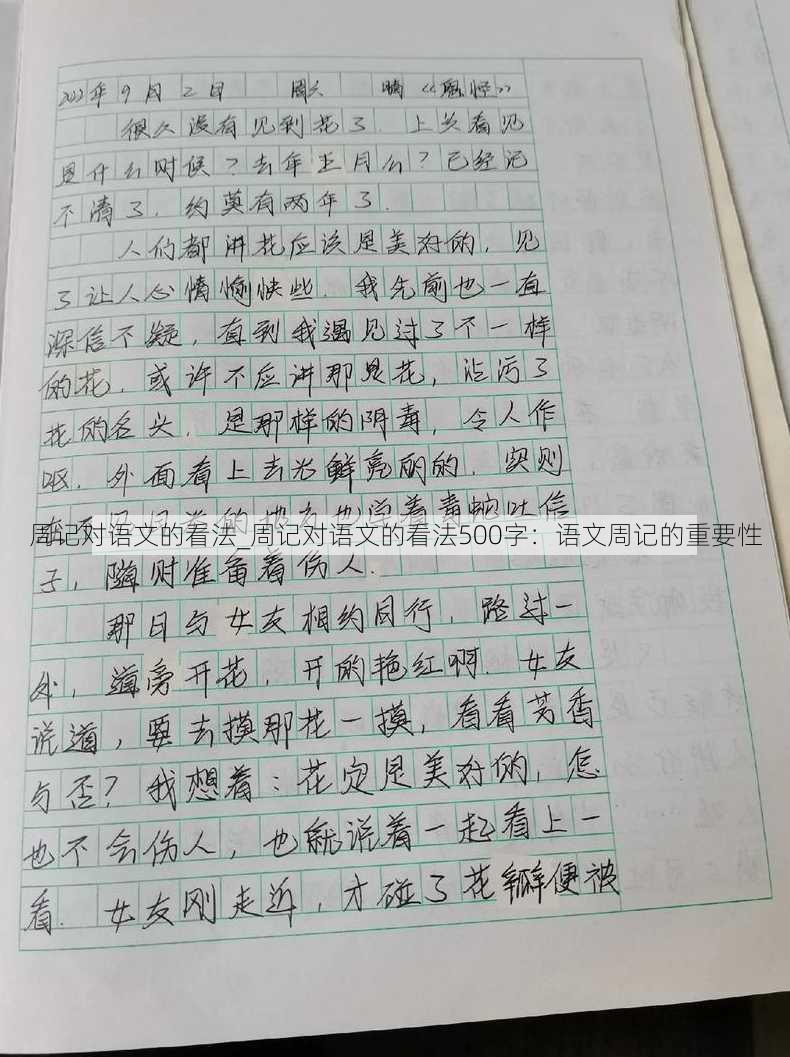 2023年9月2日 周六 晴
很久没有见到花了．上关看见
是什么时候？去年五月么？已经记
不清了．约莫有两年了．
人们都讲花应该是美好的，见
了让人心情愉快些．我先前也一直
深信不疑，直到我遇见过了不一样
的花．或许不应讲那是花，沾污了
花的名头．是那样的阴毒，令人作
呕．外面看上去光鲜亮丽的．实则
毒蛇吐信
周记对语文的看法_周记对语文的看法500字：语文周记的重要性
子，随时准备着伤人．
那日与女友相约同行，路过一
处，道旁开花，开的艳红啊．女友
说道，要去摸那花一摸，看看芳香
与否？我想着：花定是美好的，怎
也不会伤人，也就说着一起看上一
看．女友刚走近，才碰了花瓣便被